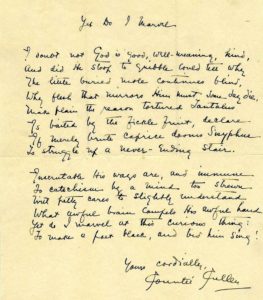 Yet Do I Marvel
I doubt not God is good, well-meaning, kind,
And did He stoop to quibble could tell why
The little buried mole continues blind,
Why flesh that mirrors Him must some day die,
Make plain the reason tortured Tantalus
Is baited by the fickle fruit, declare
If merely brute caprice dooms Sisyphus
To struggle up a never-ending stair.
Inscrutable His ways are, and immune
To catechism by a mind too strewn
With petty cares to slightly understand
What awful brain compels His awful hand
Yet do I marvel at this curious thing:
To make a poet black, and bid him sing!
Yours cordially,
Countée Cullen